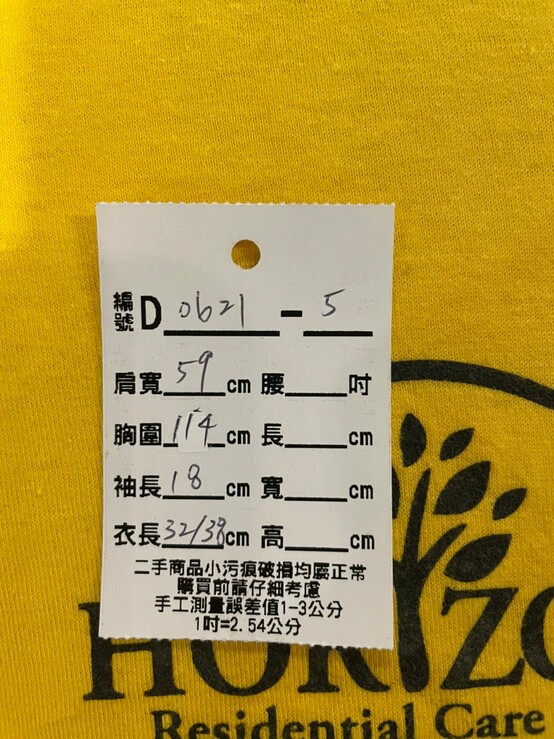 編號 D 0621 - 5
肩寬 59 cm 腰 吋
胸圍 114 cm 長 cm
袖長 18 cm 寬 cm
衣長 32/38 cm 高 cm
二手商品小污痕破損均屬正常
購買前請仔細考慮
手工測量誤差值1-3公分
1吋=2.54公分
HORIZO
Residential Care